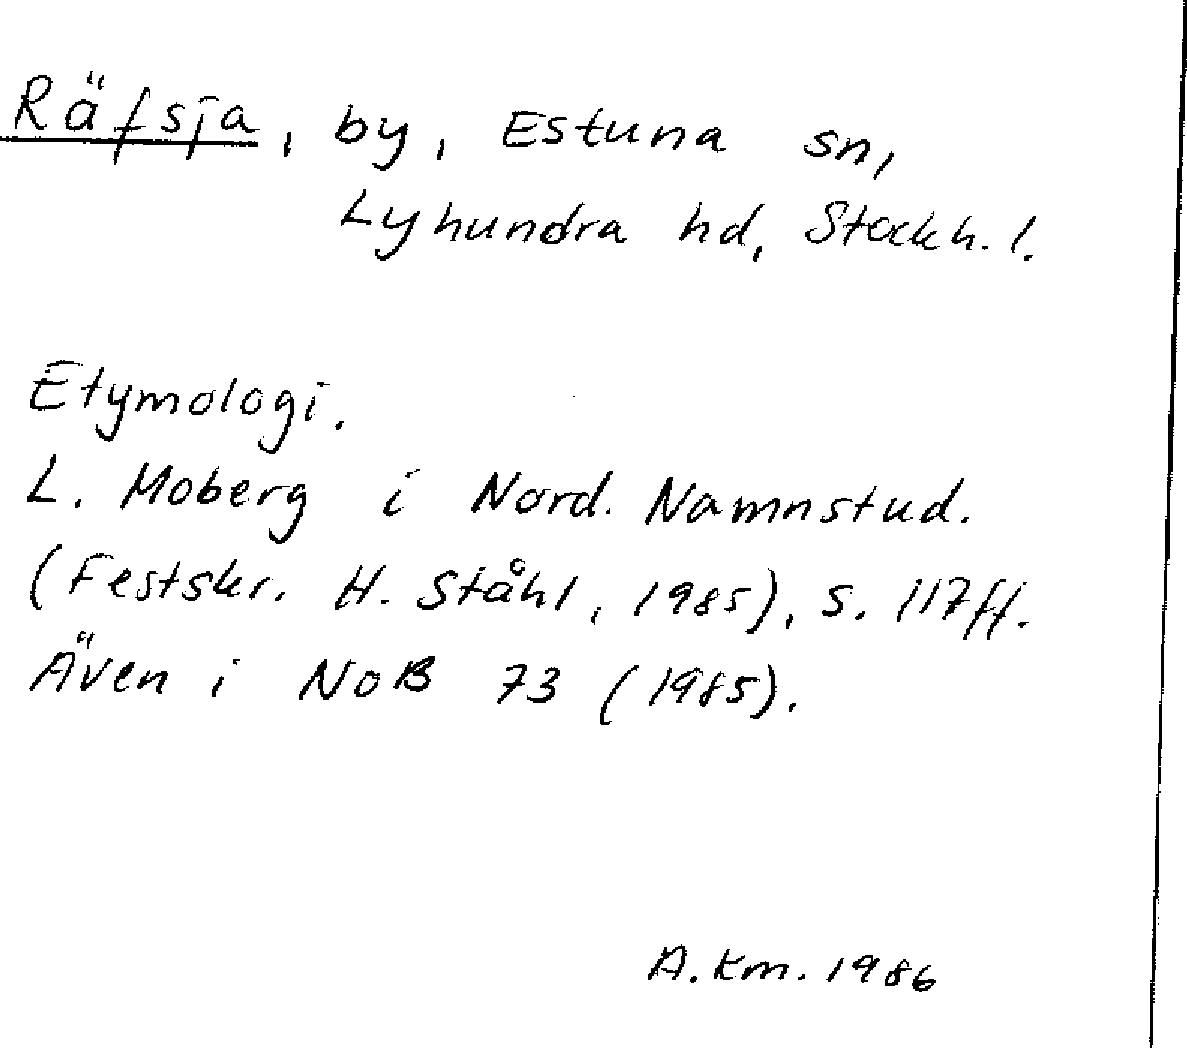 Räfsja, by, Estuna sn,
Lyhundra hd, Stockh. l.
Etymologi.
L. Moberg i Nord. Namnstud.
(Festskr. H. Ståhl, 1985), s. 117ff.
Även i NoB 73 (1985).
A. Km. 1986